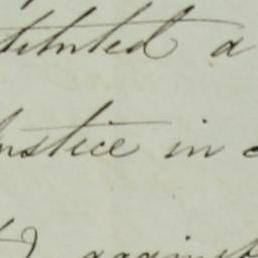 stituted a
Justice in
against